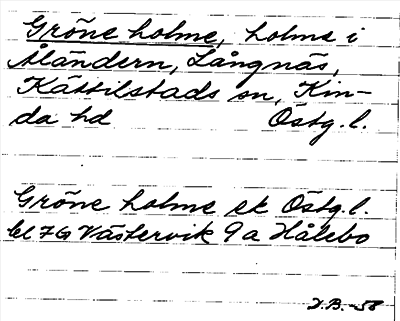 Gröne holme, holme i
Åländern, Långnäs,
Kättilstads sn, Kin-
da hd Östg.l.
Gröne holme ek Östg.l.
bl 76 Västervik 9a Hålebo
D.B.-58